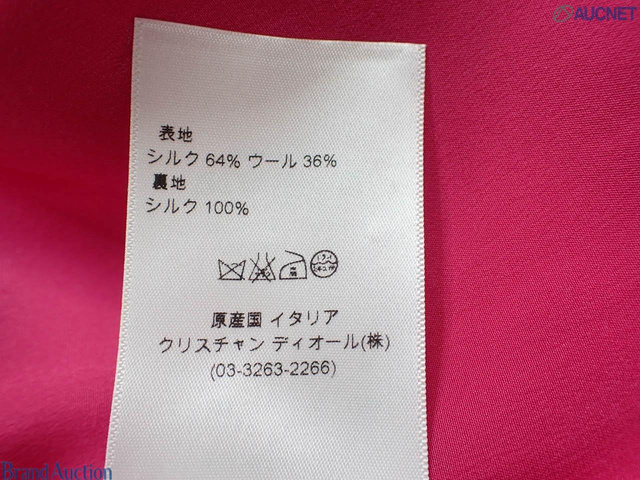 AUCNET
表地
シルク 64% ウール 36%
裏地
シルク 100%
原産国 イタリア
クリスチャン ディオール(株)
(03-3263-2266)
Brand Auction